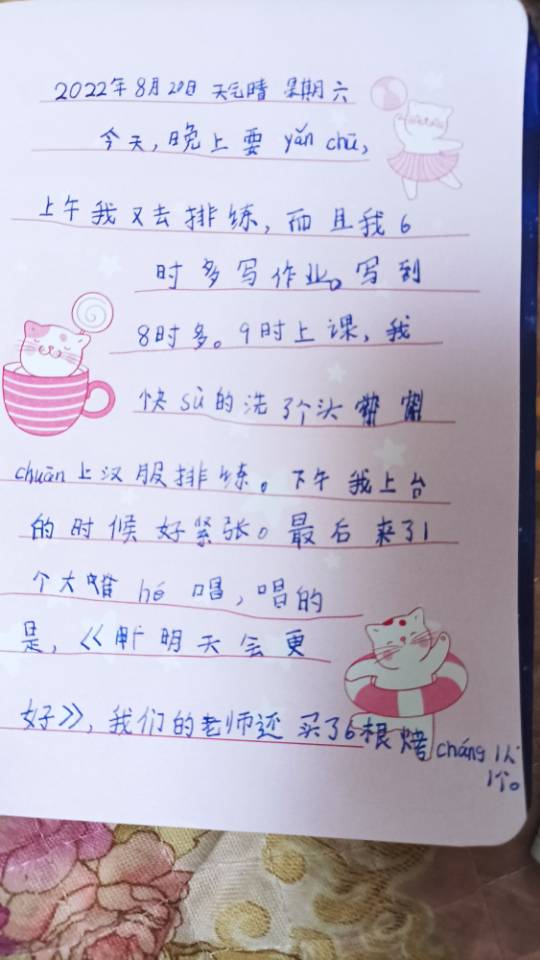 2022年8月20日 天气晴 星期六
今天,晚上要 yǎn chū,
上午我又去排练,而且我6
时多写作业。写到
8时多。9时上课,我
快sù的洗了个头
chuān上汉服排练。下午我上台
的时候好紧张。最后来了1
个大 hé 唱,唱的
是,《 明天会更
好》,我们的老师还买了6根烤cháng 1人
1个。